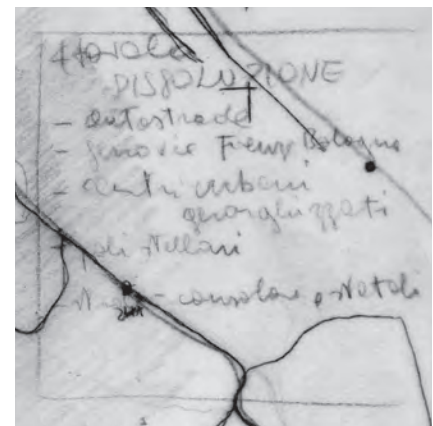 4 tavola
DISSOLUZIONE
- autostrade
- ferrovie Firenze Bologna
- centri urbani
gerarchizzati
- poli stellari
- strade - consolari e statali